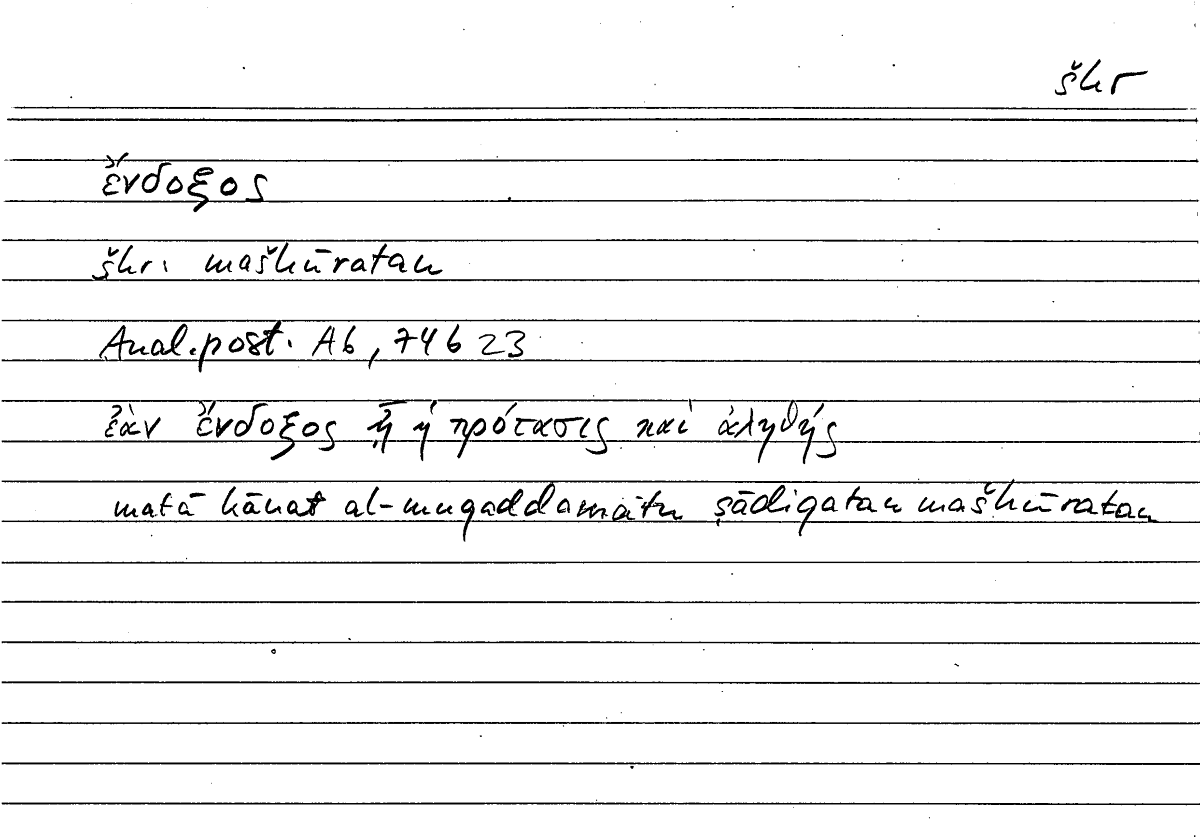 šhr
ἔνδοξος
šhr: mašhūratan
Anal. post. A6, 74b23
ἐὰν ἔνδοξος ᾖ ἡ πρότασις καὶ ἀληθής
matā kānat al-muqaddamātu ṣādiqatan mašhūratan